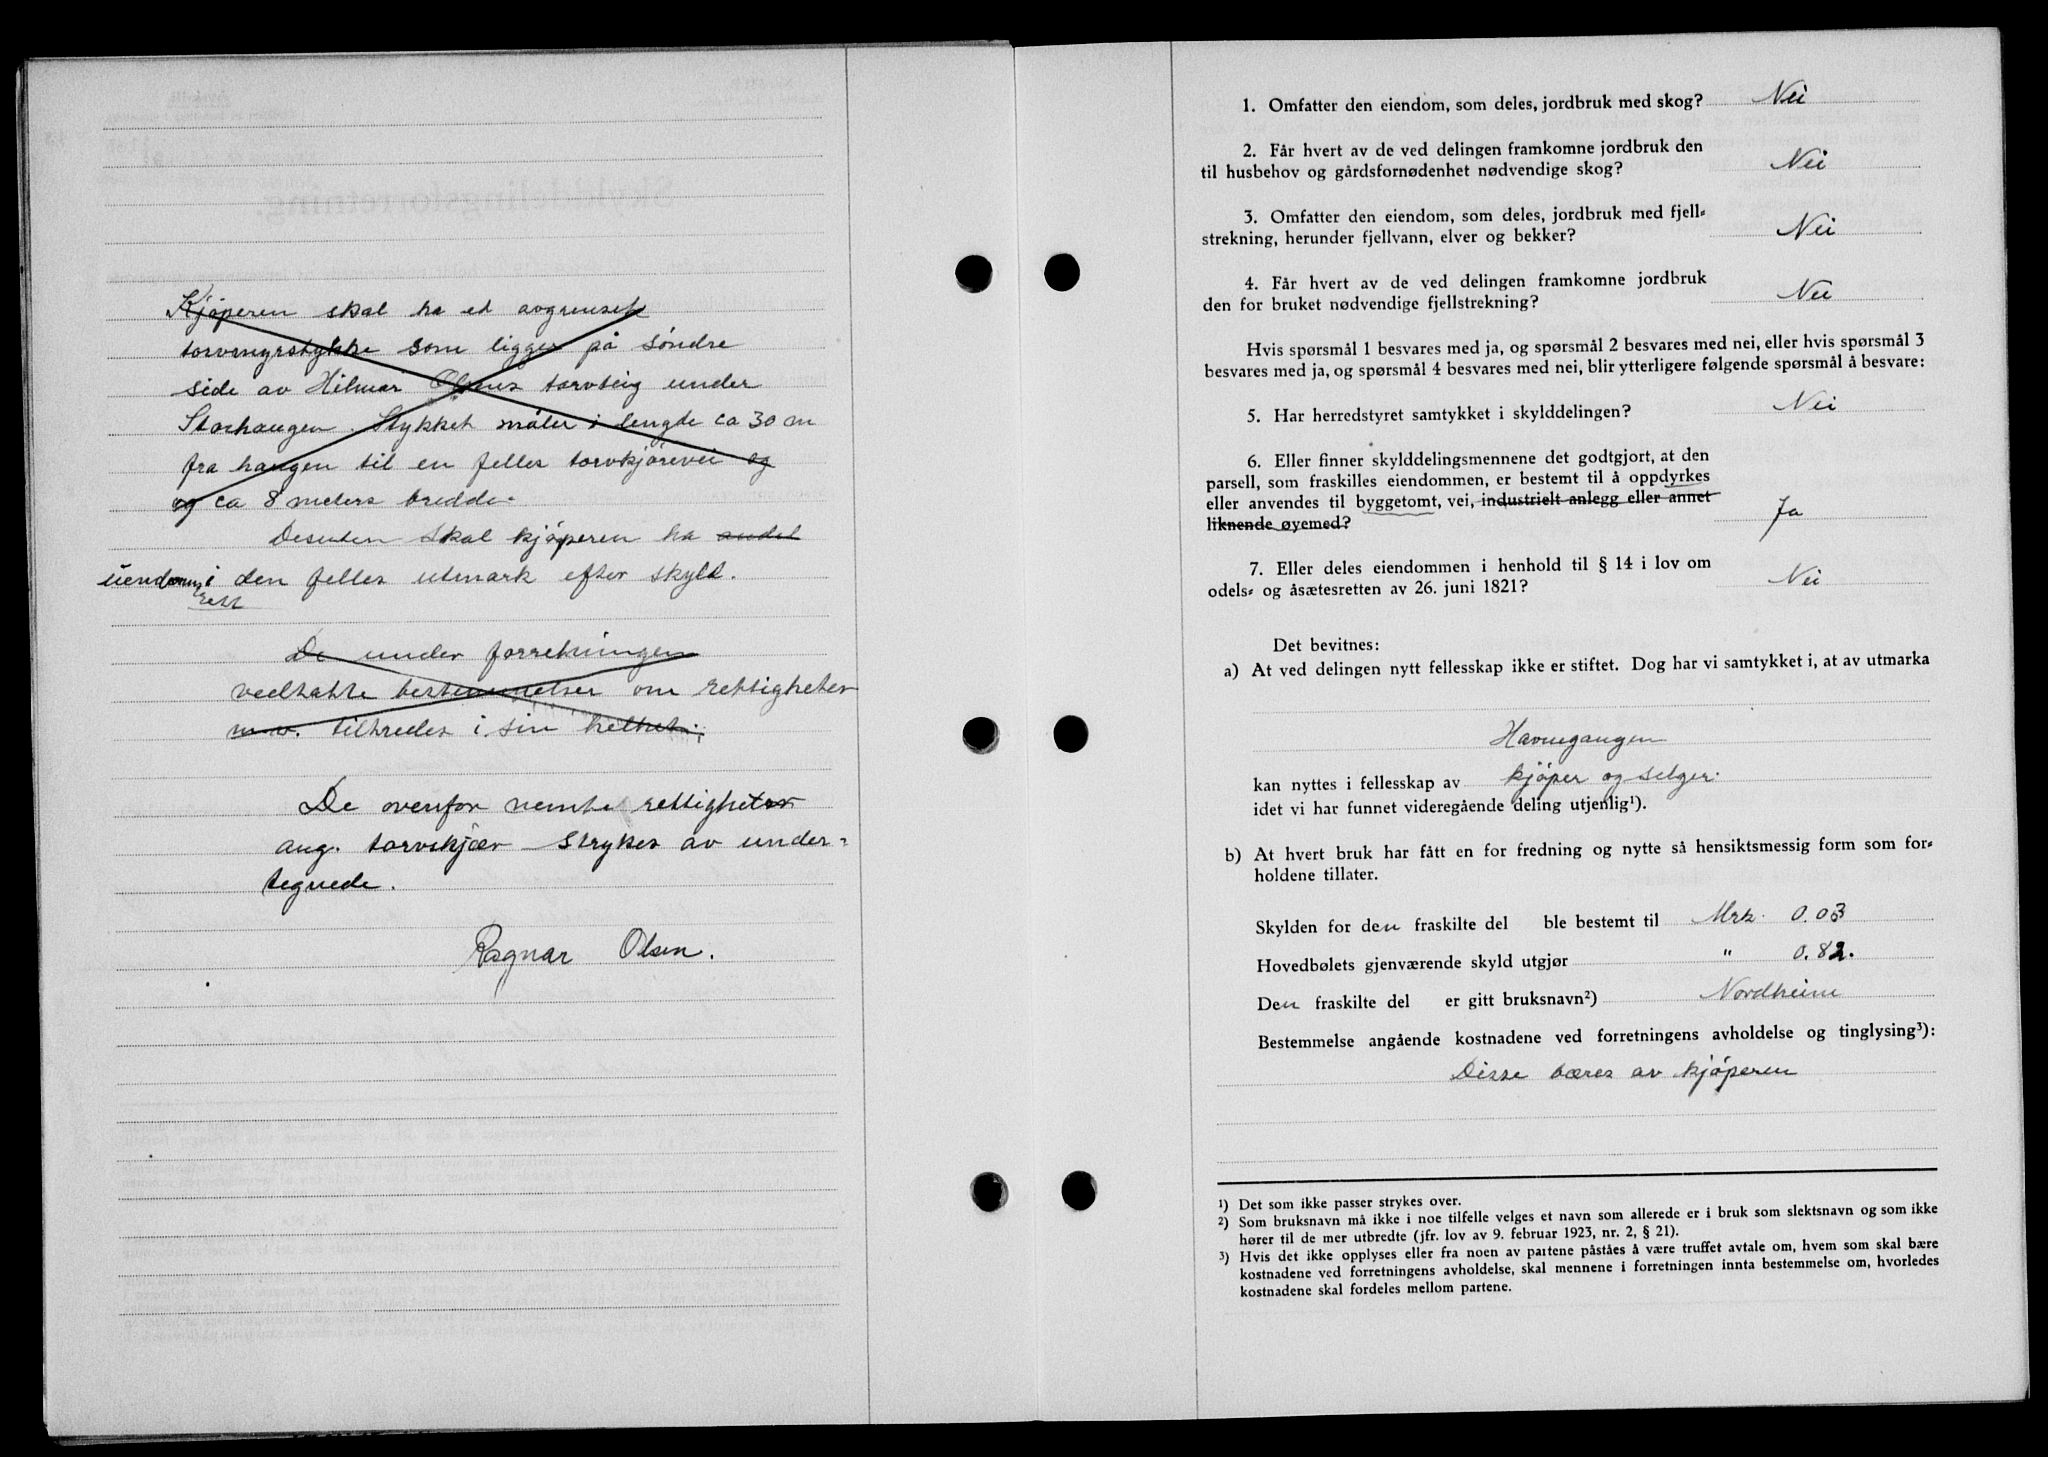 Kjøperen skal ha et avgrenset
torvmyrstykke som ligger på søndre
side av Hilmar Olsens torvteig under
Storhaugen. Stykket måler i lengde ca 30 m
fra haugen til en felles torvkjørevei og
og ca 8 meters bredde.
Desuten skal kjøperen ha andel
eiendomsrett i den felles utmark efter skyld.
De under forretningen
vedtatte bestemmelser om rettigheter
m.v. tiltredes i sin helhet.
De ovenfor nemte rettigheter
ang. torvskjær strykes av under-
tegnede.
Ragnar Olsen.
1. Omfatter den eiendom, som deles, jordbruk med skog? Nei
2. Får hvert av de ved delingen framkomne jordbruk den
til husbehov og gårdsfornødenhet nødvendige skog? Nei
3. Omfatter den eiendom, som deles, jordbruk med fjell-
strekning, herunder fjellvann, elver og bekker? Nei
4. Får hvert av de ved delingen framkomne jordbruk
den for bruket nødvendige fjellstrekning? Nei
Hvis spørsmål 1 besvares med ja, og spørsmål 2 besvares med nei, eller hvis spørsmål 3
besvares med ja, og spørsmål 4 besvares med nei, blir ytterligere følgende spørsmål å besvare:
5. Har herredstyret samtykket i skylddelingen? Nei
6. Eller finner skylddelingsmennene det godtgjort, at den
parsell, som fraskilles eiendommen, er bestemt til å oppdyrkes
eller anvendes til byggetomt, vei, industrielt anlegg eller annet
liknende øyemed? Ja
7. Eller deles eiendommen i henhold til § 14 i lov om
odels- og åsætesretten av 26. juni 1821? Nei
Det bevitnes:
a) At ved delingen nytt fellesskap ikke er stiftet. Dog har vi samtykket i, at av utmarka
Havnegangen
kan nyttes i fellesskap av kjøper og selger.
idet vi har funnet videregående deling utjenlig¹).
b) At hvert bruk har fått en for fredning og nytte så hensiktsmessig form som for-
holdene tillater.
Skylden for den fraskilte del ble bestemt til Mrk. 0.03
Hovedbølets gjenværende skyld utgjør " 0.82.
Den fraskilte del er gitt bruksnavn²) Nordheim
Bestemmelse angående kostnadene ved forretningens avholdelse og tinglysing³):
Disse bæres av kjøperen
¹) Det som ikke passer strykes over.
²) Som bruksnavn må ikke i noe tilfelle velges et navn som allerede er i bruk som slektsnavn og som ikke
hører til de mer utbredte (jfr. lov av 9. februar 1923, nr. 2, § 21).
³) Hvis det ikke opplyses eller fra noen av partene påståes å være truffet avtale om, hvem som skal bære
kostnadene ved forretningens avholdelse, skal mennene i forretningen innta bestemmelse om, hvorledes
kostnadene skal fordeles mellom partene.